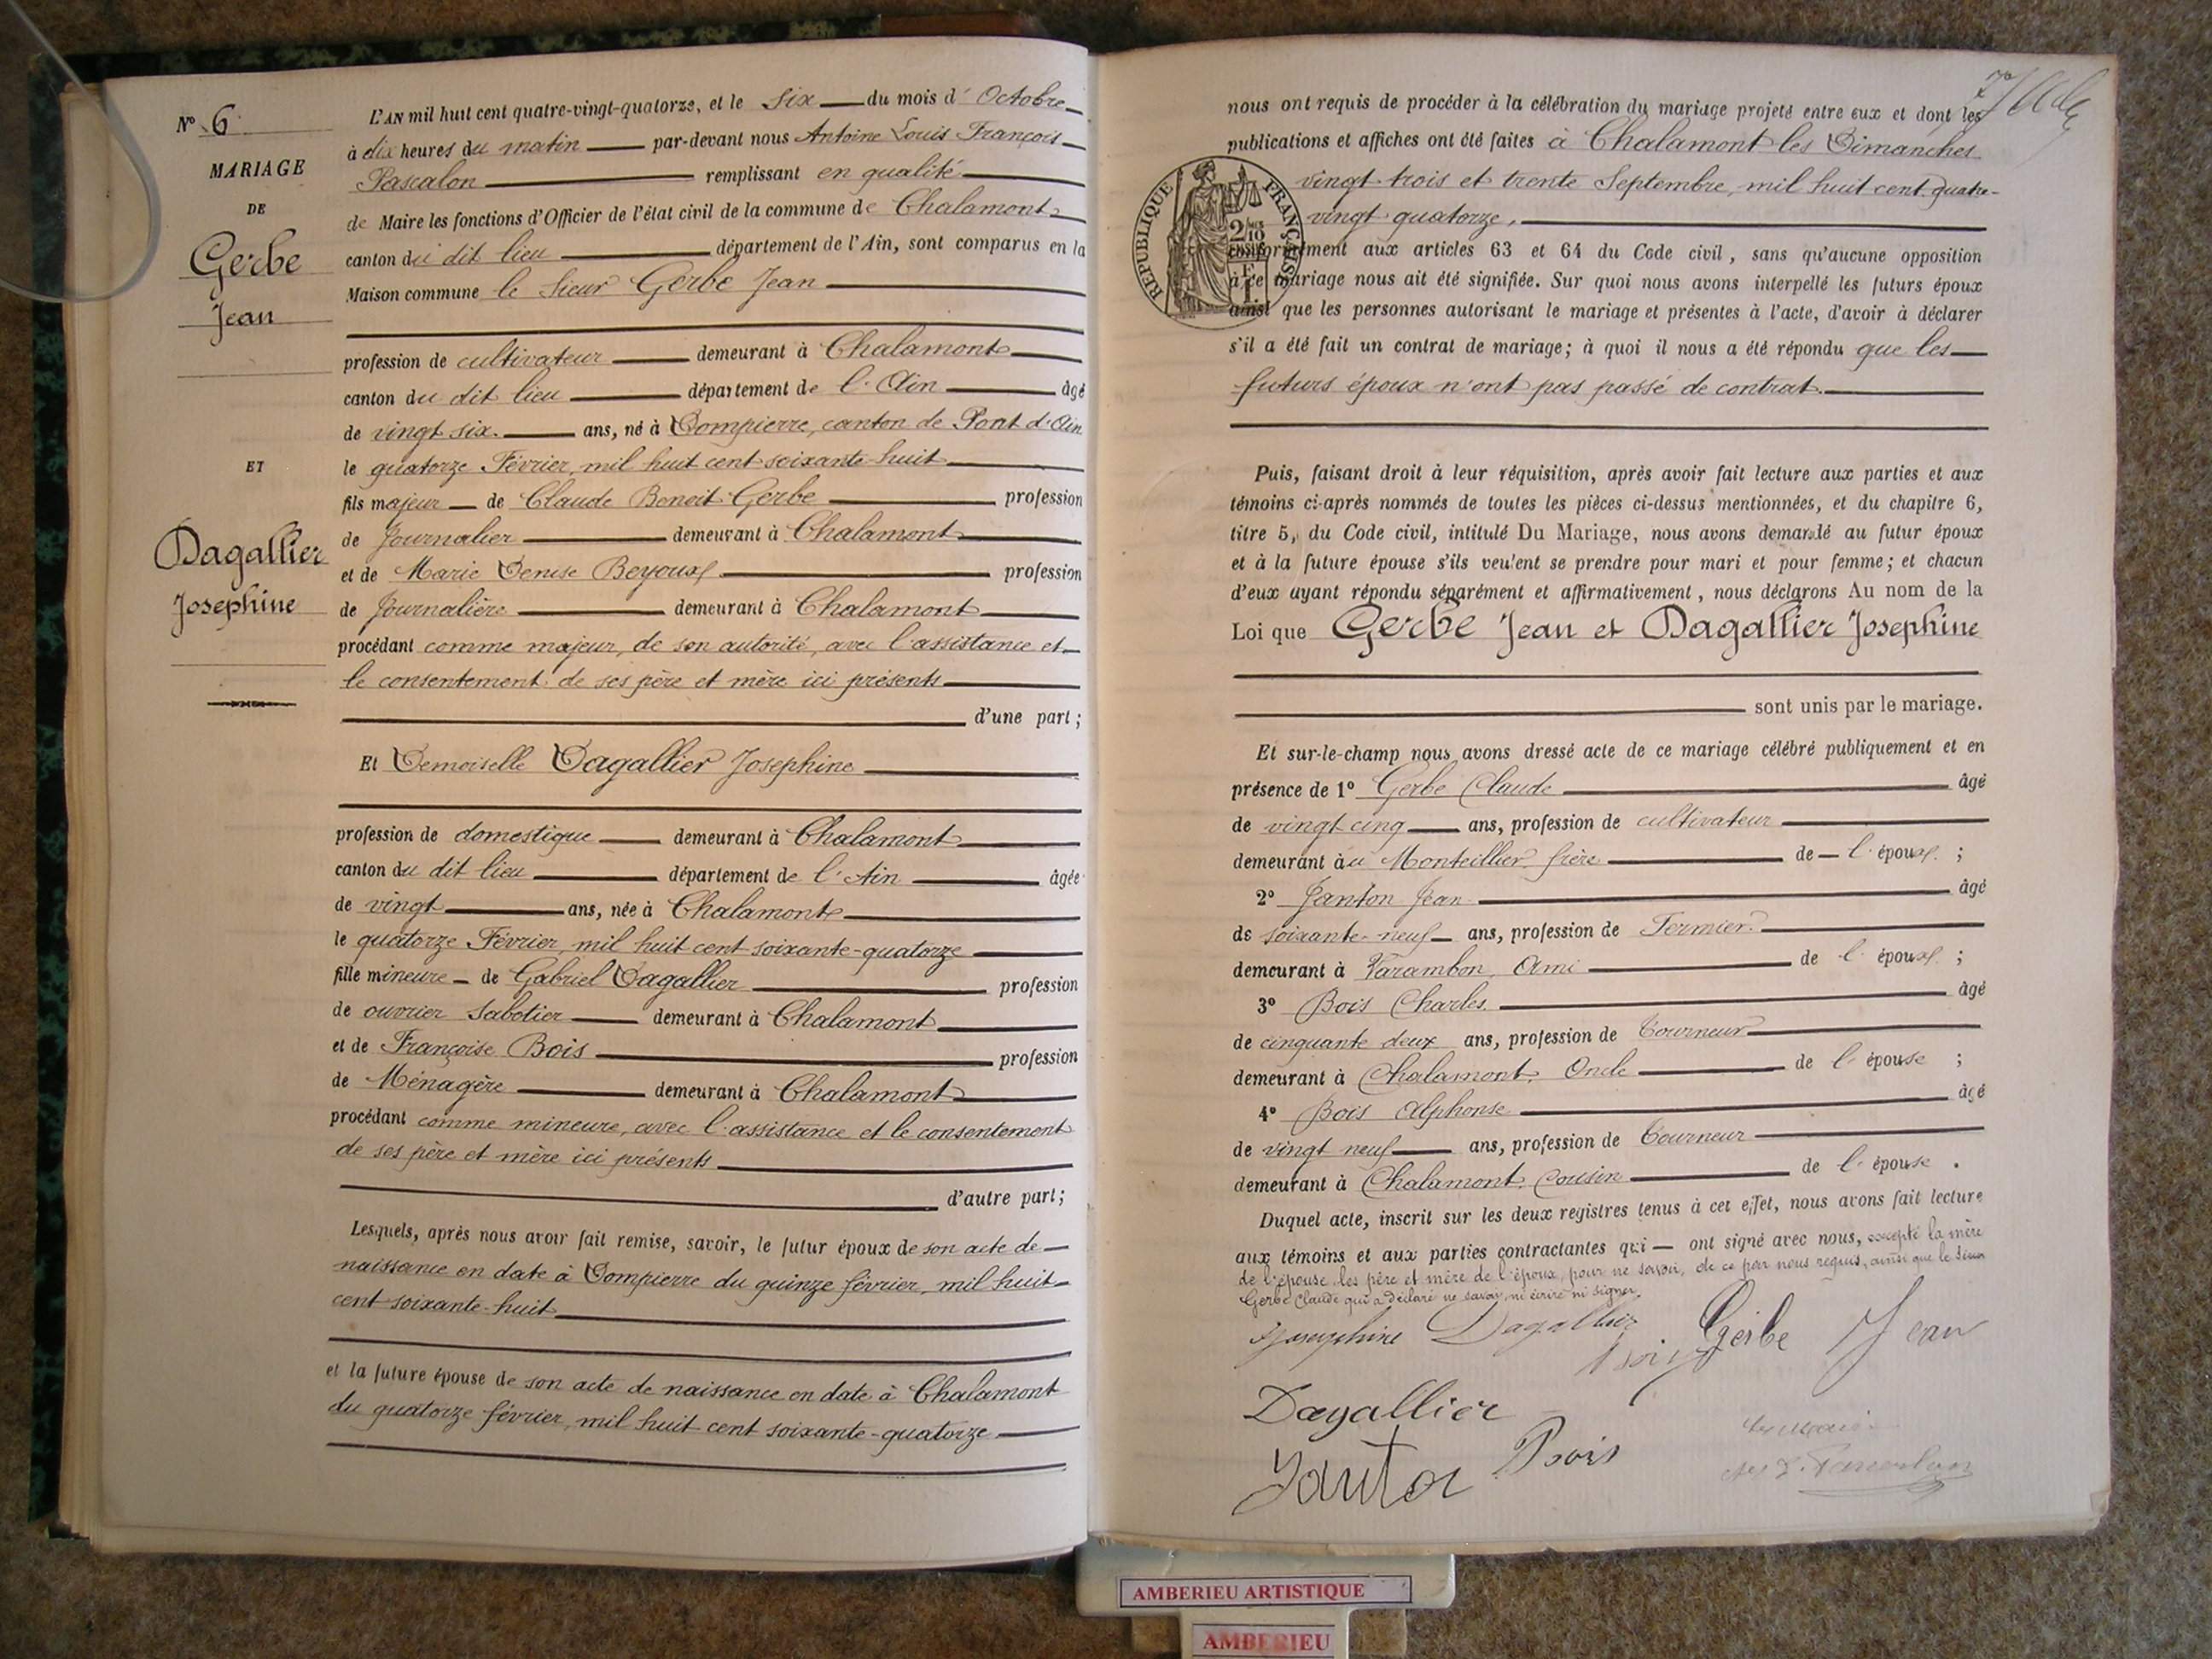 N° 6
MARIAGE
DE
Gerbe
Jean
ET
Dagallier
Josephine
L'AN mil huit cent quatre-vingt-quatorze, et le six du mois d' Octobre
à dix heures du matin par-devant nous Antoine Louis François
Pascalon remplissant en qualité
de Maire les fonctions d'Officier de l'état civil de la commune de Chalamont
canton du dit lieu département de l'Ain, sont comparus en la
Maison commune le Sieur Gerbe Jean
profession de cultivateur demeurant à Chalamont
canton du dit lieu département de l'Ain âgé
de vingt six ans, né à Dompierre, canton de Pont d'Ain
le quatorze Février, mil huit cent soixante-huit
fils majeur de Claude Benoit Gerbe profession
de Journalier demeurant à Chalamont
et de Marie Denise Beyoux profession
de Journalière demeurant à Chalamont
procédant comme majeur, de son autorité, avec l'assistance et
le consentement de ses père et mère ici présents
d'une part ;
Et Demoiselle Dagallier Josephine
profession de domestique demeurant à Chalamont
canton du dit lieu département de l'Ain âgée
de vingt ans, née à Chalamont
le quatorze Février, mil huit cent soixante-quatorze
fille mineure de Gabriel Dagallier profession
de ouvrier Sabotier demeurant à Chalamont
et de Françoise Bois profession
de Ménagère demeurant à Chalamont
procédant comme mineure, avec l'assistance et le consentement
de ses père et mère ici présents
d'autre part ;
Lesquels, après nous avoir fait remise, savoir, le futur époux de son acte de
naissance en date à Dompierre du quinze février, mil huit
cent soixante-huit
et la future épouse de son acte de naissance en date à Chalamont
du quatorze février, mil huit cent soixante-quatorze
nous ont requis de procéder à la célébration du mariage projeté entre eux et dont les
publications et affiches ont été faites à Chalamont les Dimanches
vingt-trois et trente Septembre, mil huit cent quatre-
vingt quatorze,
REPUBLIQUE FRANÇAISE
conformément aux articles 63 et 64 du Code civil, sans qu'aucune opposition
à ce mariage nous ait été signifiée. Sur quoi nous avons interpellé les futurs époux
ainsi que les personnes autorisant le mariage et présentes à l'acte, d'avoir à déclarer
s'il a été fait un contrat de mariage; à quoi il nous a été répondu que les
futurs époux n'ont pas passé de contrat.
Puis, faisant droit à leur réquisition, après avoir fait lecture aux parties et aux
témoins ci-après nommés de toutes les pièces ci-dessus mentionnées, et du chapitre 6,
titre 5, du Code civil, intitulé Du Mariage, nous avons demandé au futur époux
et à la future épouse s'ils veulent se prendre pour mari et pour femme; et chacun
d'eux ayant répondu séparément et affirmativement, nous déclarons Au nom de la
Loi que Gerbe Jean et Dagallier Josephine
sont unis par le mariage.
Et sur-le-champ nous avons dressé acte de ce mariage célébré publiquement et en
présence de 1° Gerbe Claude âgé
de vingt cinq ans, profession de cultivateur
demeurant àu Monteillier frère de l'époux ;
2° Janton Jean âgé
de soixante-neuf ans, profession de Fermier
demeurant à Varambon, Ami de l'époux ;
3° Bois Charles. âgé
de cinquante deux ans, profession de Tourneur
demeurant à Chalamont, Oncle de l'épouse ;
4° Bois Alphonse âgé
de vingt neuf ans, profession de Tourneur
demeurant à Chalamont, Cousin de l'épouse .
Duquel acte, inscrit sur les deux registres tenus à cet effet, nous avons fait lecture
aux témoins et aux parties contractantes qui ont signé avec nous, excepté la mère
de l'épouse les père et mère de l'époux, pour ne savoir, de ce par nous requis, ainsi que le sieur
Gerbe Claude qui a déclaré ne savoir, ni écrire ni signer.
Josephine Dagallier
Gerbe Jean
Dagallier
Bois
Janton
AMBERIEU ARTISTIQUE
AMBERIEU